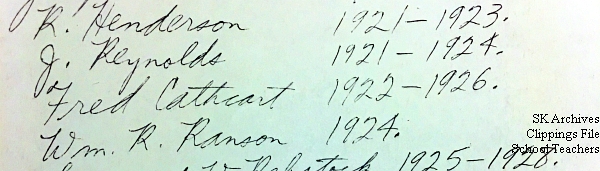 R. Henderson 1921–1923.
J. Reynolds 1921–1924.
Fred Cathcart 1922–1926.
Wm. R. Ranson 1924.
1925–1928.
SK Archives
Clippings File
School Teachers